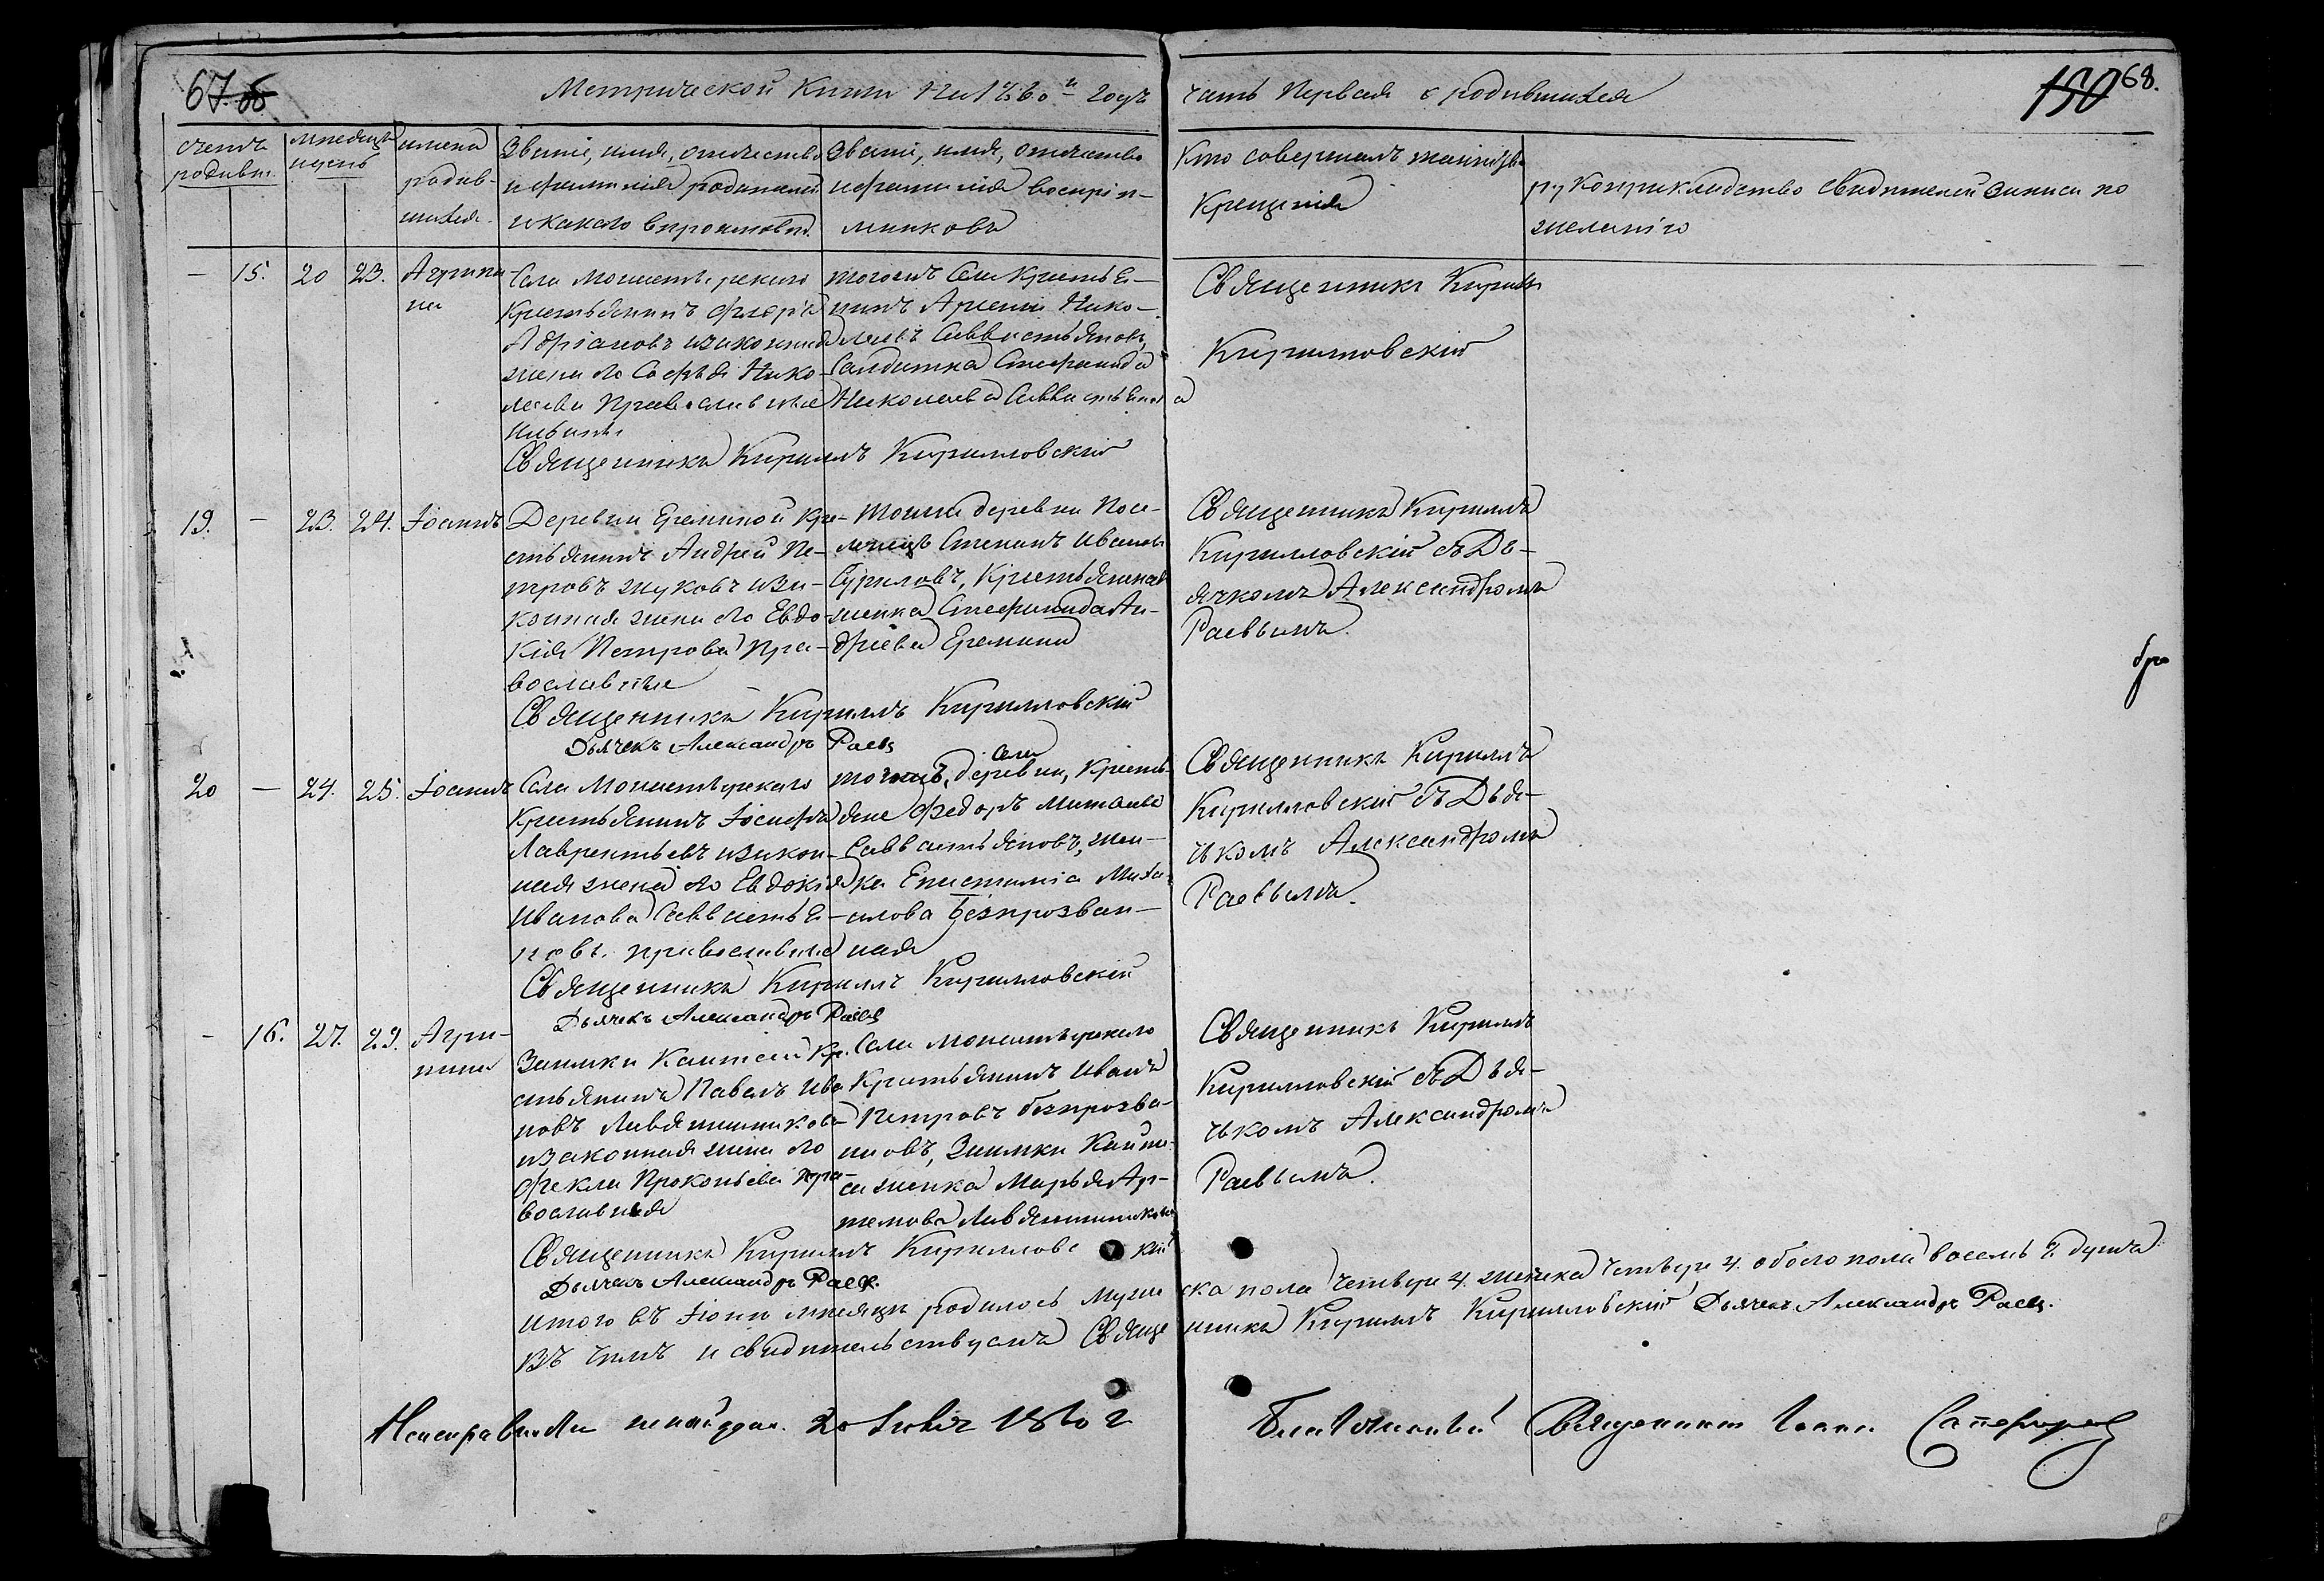 67 об
Метрической Книги На 1860й годъ часть Первая о родившихся
150 68.
счетъ родивш.
месяцъ и день
имена родив-
шихся.
Званіе, имя, отчество
и фамилія родителей
и какого вероисповед.
Званіе, имя, отчество
и фамилія воспріи-
мниковъ
Кто совершалъ таинство
Крещенія
рукоприкладство свидетелей записи по
желанію
— 15. 20 23. Агрипи-
на
Села Монастырскаго
Крестьянинъ
Адріановъ и законная
жена его Софья Нико-
лаева Православные
Священникъ Кириллъ Кирилловскій
тогожъ Села Крестья-
нинъ Арсеній Нико-
лаевъ Савватьяновъ,
Солдатка Стефанида
Николаева
Священникъ Кириллъ
Кирилловскій
19. — 23. 24. Іоаннъ
Деревни Ереминой Кре-
стьянинъ Андрей Пе-
тровъ Жуковъ и за-
конная жена его Евдо-
кія Петрова Пра-
вославные
Священникъ Кириллъ Кирилловскій
Дьячекъ Александръ Раевъ
тойже деревни Посе-
ленецъ Степанъ Ивановъ
Суриловъ, Крестьянская
женка Стефанида Ан-
дреева Еремина
Священникъ Кириллъ
Кирилловскій съ Дь-
ячкомъ Александромъ
Раевымъ.
20 — 24. 25. Іоаннъ
Села Монастырскаго
Крестьянинъ Іосифъ
Лаврентьевъ и закон-
ная жена его Евдокія
Иванова Савватья-
новы. православные
Священникъ Кириллъ Кирилловскій
Дьячекъ Александръ Раевъ
тогожъ, села деревни, Кресть-
яне Федоръ
Савватьяновъ, жен-
ка Епистимія Миха-
илова Безпрозван-
ная
Священникъ Кириллъ
Кирилловскій съ Дья-
чкомъ Александромъ
Раевымъ.
- 16. 27. 29. Агри-
пина
Заимки Каптевой Кре-
стьянинъ Павелъ Ива-
новъ
и законная жена его
Фекла Прокопьева пра-
вославная
Священникъ Кириллъ Кирилловскій
Дьячекъ Александръ Раевъ.
Села Монастырскаго
Крестьянинъ Иванъ
Петровъ безпрозва-
нновъ, Заимки
женка Марья Ар-
темова
Священникъ Кириллъ
Кирилловскій съ Дья-
чкомъ Александромъ
Раевымъ.
Итого въ Іюни месяце родилось мужеска пола четверо 4. женска четверо 4. обоего пола восемь 8. душъ
Въ чемъ и свидетельствуемъ Священникъ Кириллъ Кирилловскій Дьячекъ Александръ Раевъ.
Неисправности не найдено. 20 Іюля 1860 г.
Благочинный Священникъ Іоаннъ